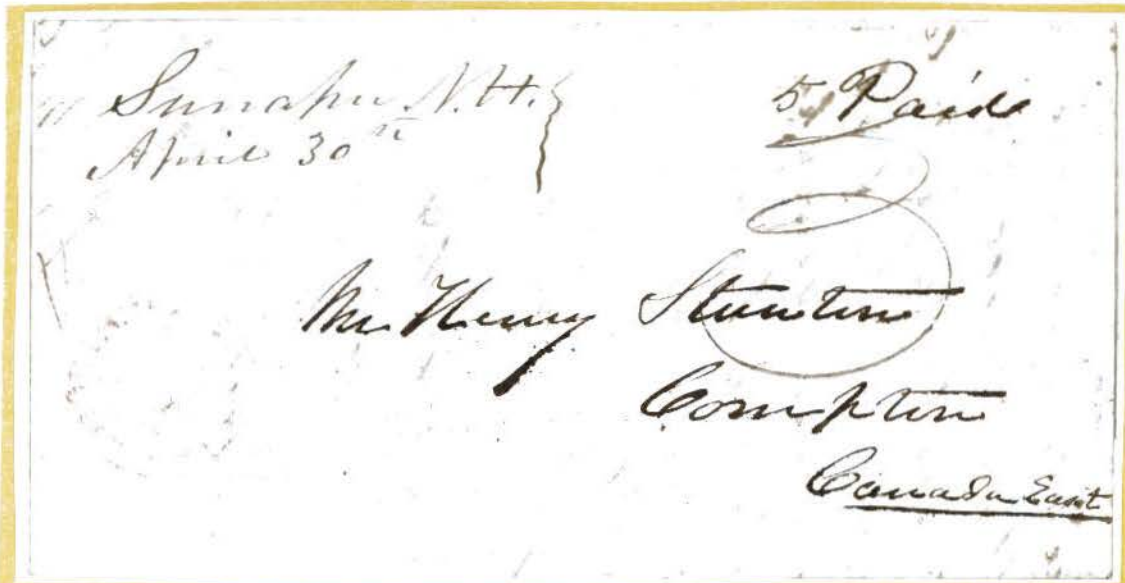 Sunapee N.H.
April 30th
5 Paid
Mr. Henry
Compton
Canada East